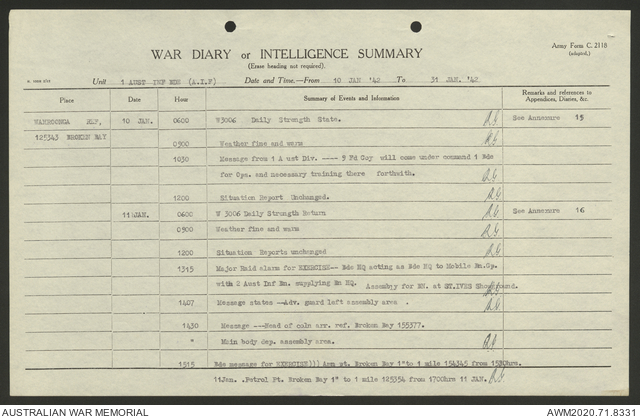 Army Form C. 2118
(adapted.)
WAR DIARY or INTELLIGENCE SUMMARY
(Erase heading not required).
Unit 1 AUST INF BDE (A.I.F) Date and Time.—From 10 JAN '42 To 31 JAN. '42
Place Date Hour Summary of Events and Information Remarks and references to Appendices, Diaries, &c.
10 JAN. 0600 W3006 Daily Strength State. See Annexure 15
125343 BROKEN BAY
0900 Weather fine and warm
1030 Message from 1 Aust Div. ---- 9 Fd Coy will come under command 1 Bde
for Ops. and necessary training there forthwith.
1200 Situation Report Unchanged.
11 JAN. 0600 W 3006 Daily Strength Return See Annexure 16
0900 Weather fine and warm
1200 Situation Reports unchanged
1315 Major Raid alarm for EXERCISE-- Bde HQ acting as Bde HQ to Mobile Bn.Gp.
with 2 Aust Inf Bn. supplying Bn HQ. Assembly for BN. at ST.IVES Showground.
1407 Message states --Adv. guard left assembly area .
1430 Message ---Head of coln arr. ref. Broken Bay 155377.
" Main body dep. assembly area.
1515 Bde message for EXERCISE))) Amn pt. Broken Bay 1"to 1 mile 154345 from 1530hrs.
11Jan. .Petrol Pt. Broken Bay 1" to 1 mile 125354 from 1700hrs 11 JAN.
AUSTRALIAN WAR MEMORIAL AWM2020.71.8331